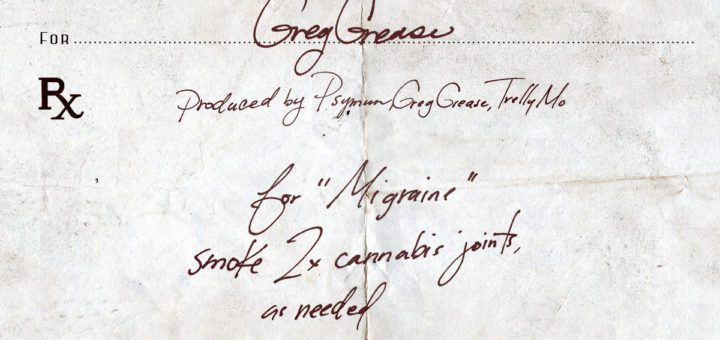 FOR Greg Grease
Rx
Produced by Psymun, Greg Grease, Trelly Mo
for "Migraine"
smoke 2x cannabis joints,
as needed